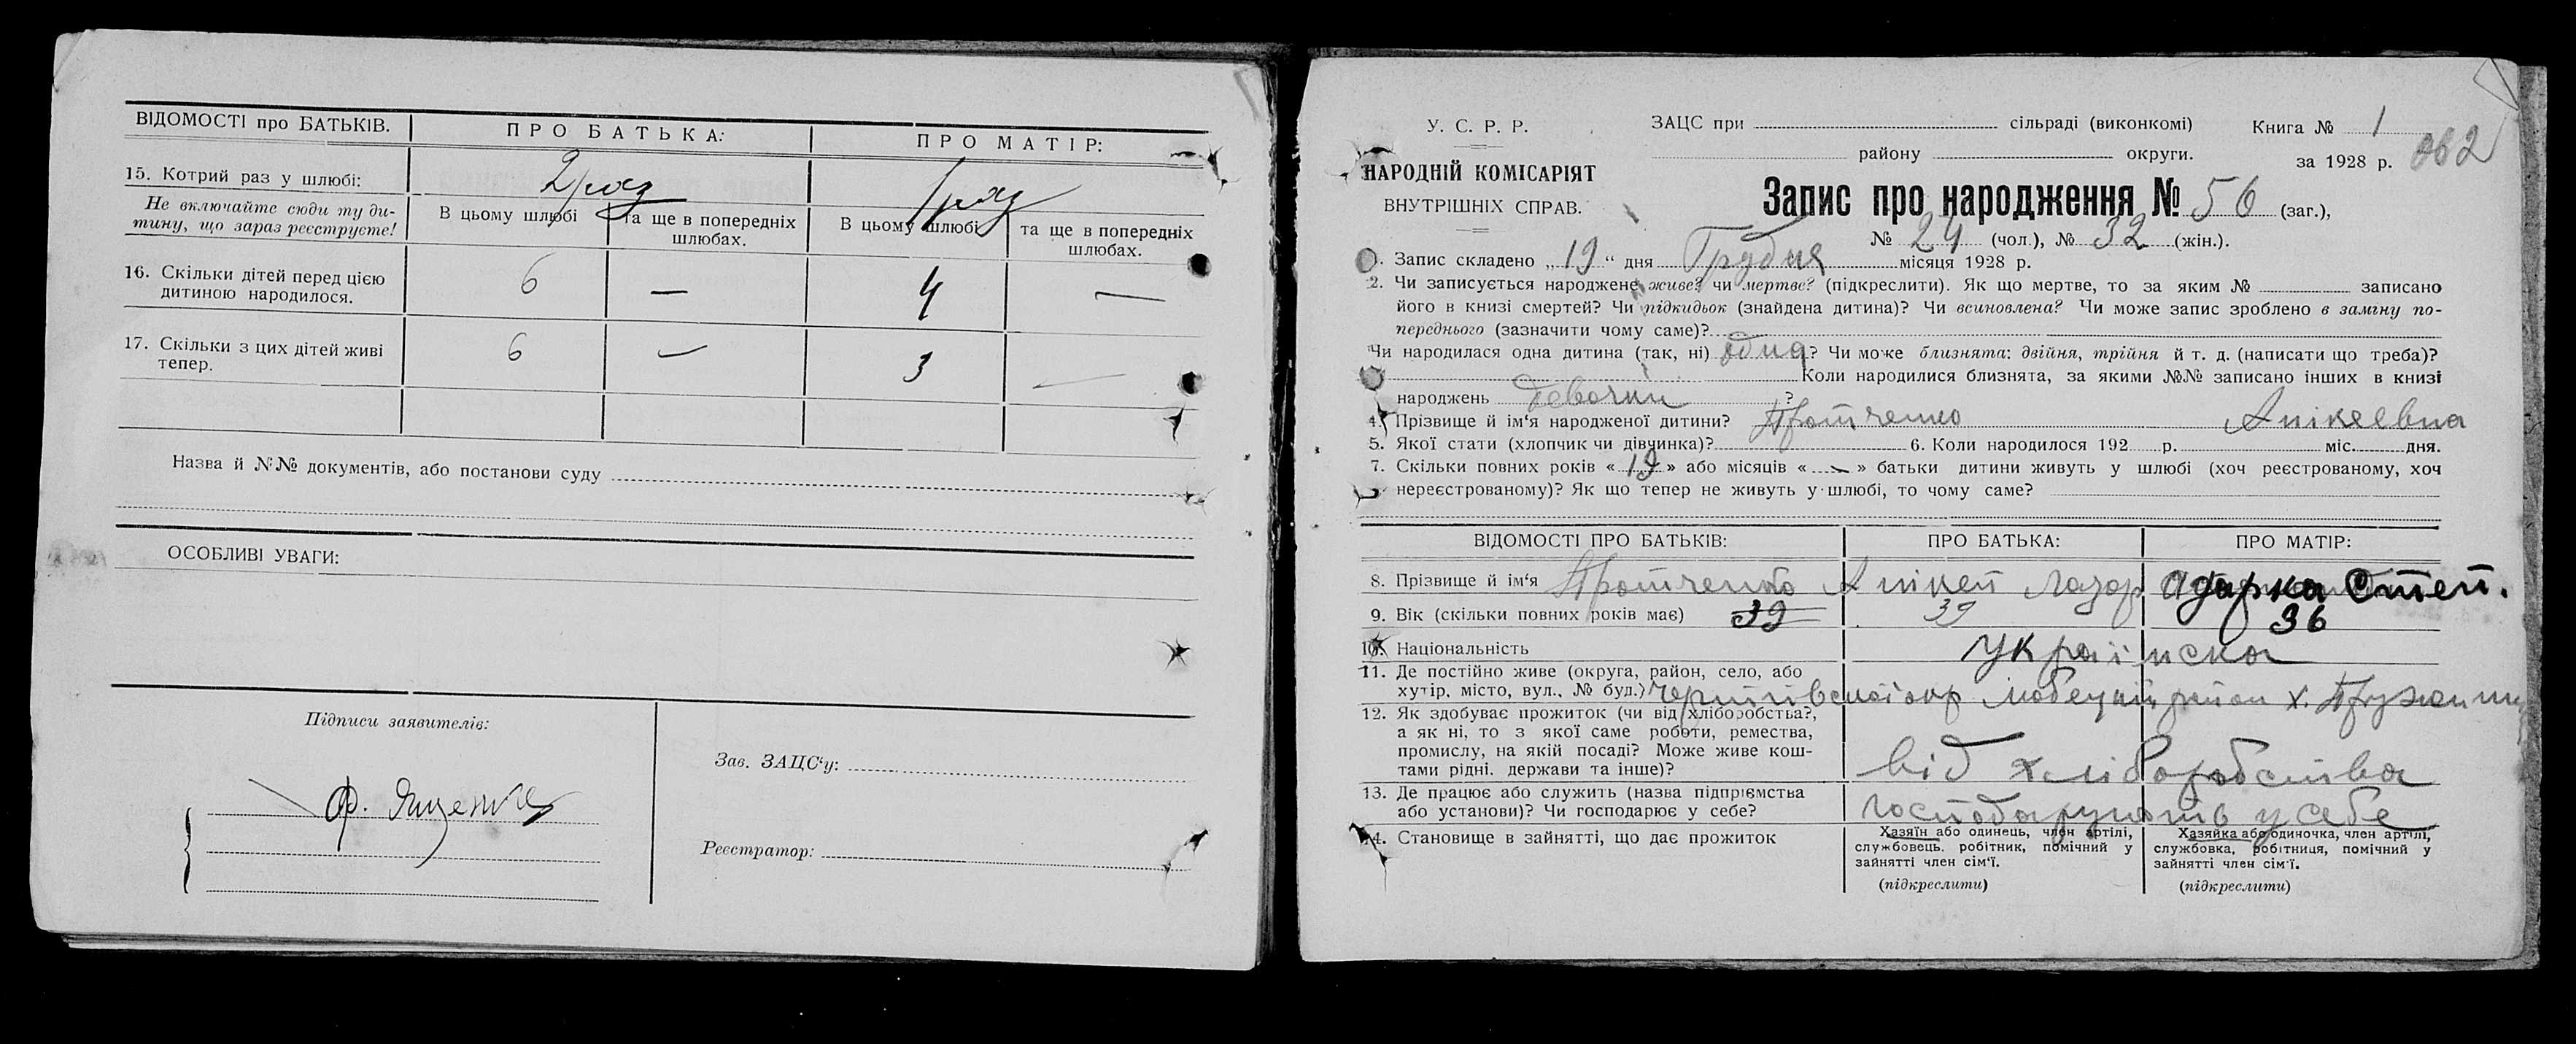 ВІДОМОСТІ про БАТЬКІВ.
ПРО БАТЬКА:
ПРО МАТІР:
15. Котрий раз у шлюбі:
2 раз
1 раз
Не включайте сюди ту ди-
тину, що зараз реєструєте!
В цьому шлюбі
та ще в попередніх
шлюбах.
В цьому шлюбі
та ще в попередніх
шлюбах.
16. Скільки дітей перед цією
дитиною народилося.
6 — 4 —
17. Скільки з цих дітей живі
тепер.
6 — 3 —
Назва й №№ документів, або постанови суду
ОСОБЛИВІ УВАГИ:
Підписи заявителів:
Зав. ЗАЦС'у:
Ф. Яценко
Реєстратор:
У. С. Р. Р.
НАРОДНІЙ КОМІСАРІЯТ
ВНУТРІШНІХ СПРАВ.
ЗАЦС при сільраді (виконкомі)
району округи.
Книга № 1
за 1928 р.
Запис про народження № 56 (заг.),
№ 24 (чол.), № 32 (жін.).
1. Запис складено „19“ дня Грудня місяця 1928 р.
2. Чи записується народжене живе? чи мертве? (підкреслити). Як що мертве, то за яким № записано
його в книзі смертей? Чи підкидьок (знайдена дитина)? Чи всиновлена? Чи може запис зроблено в заміну по-
переднього (зазначити чому саме)?
Чи народилася одна дитина (так, ні) одна? Чи може близнята: двійня, трійня й т. д. (написати що треба)?
Коли народилися близнята, за якими №№ записано інших в книзі
народжень девочки ?
4. Прізвище й ім'я народженої дитини? Протченко Анікеевна
5. Якої стати (хлопчик чи дівчинка)? 6. Коли народилося 192 р. міс. дня.
7. Скільки повних років «19» або місяців «—» батьки дитини живуть у шлюбі (хоч реєстрованому, хоч
нереєстрованому)? Як що тепер не живуть у шлюбі, то чому саме?
ВІДОМОСТІ ПРО БАТЬКІВ:
ПРО БАТЬКА:
ПРО МАТІР:
8. Прізвище й ім'я Протченко Анікей Лазар Одарка Степ.
9. Вік (скільки повних років має) 39 39 36
10. Національність Українска
11. Де постійно живе (округа, район, село, або
хутір, місто, вул., № буд.) район х.
12. Як здобуває прожиток (чи від хліборобства?,
а як ні, то з якої саме роботи, ремества,
промислу, на якій посаді? Може живе кош-
тами рідні, держави та інше)?
Від хліборобства
13. Де працює або служить (назва підприємства
або установи)? Чи господарює у себе?
у себе
14. Становище в зайнятті, що дає прожиток
Хазяїн або одинець, член артілі,
службовець, робітник, помічний у
зайнятті член сім'ї.
(підкреслити)
Хазяйка або одиночка, член артілі,
службовка, робітниця, помічний у
зайнятті член сім'ї.
(підкреслити)